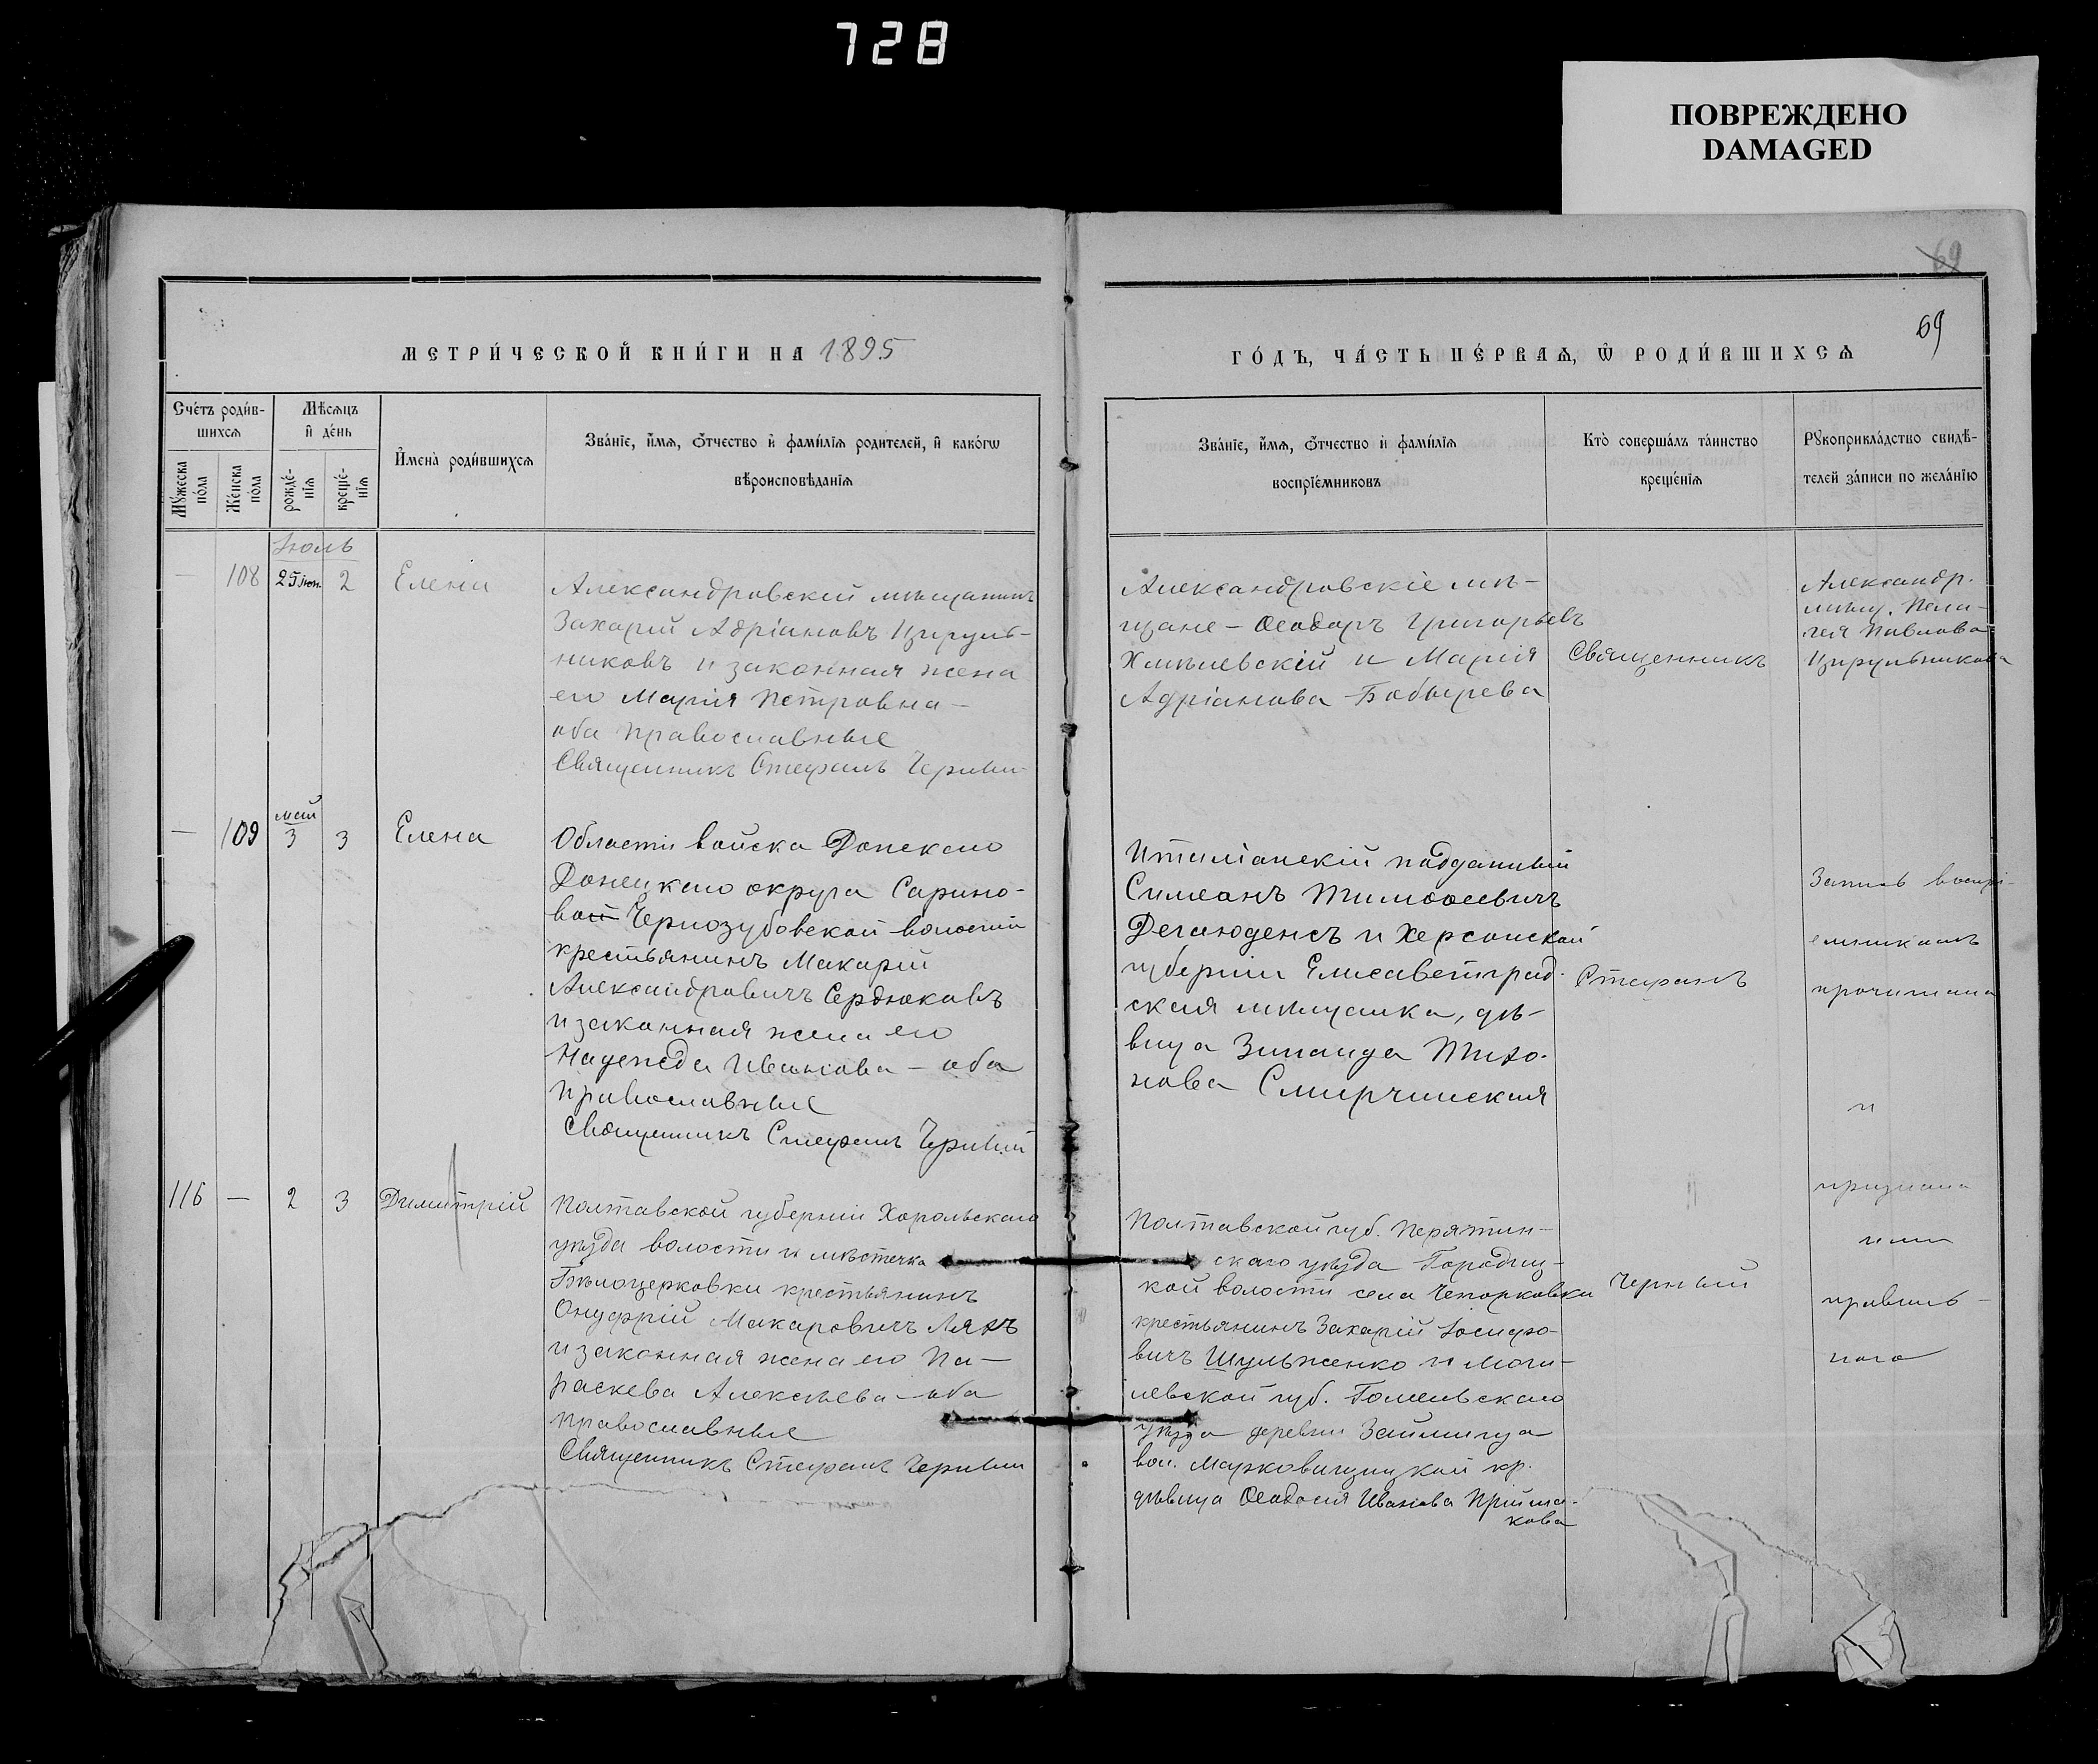 728
ПОВРЕЖДЕНО
DAMAGED
69
69
МЕТРИ́ЧЕСКОЙ КНИ́ГИ НА 1895
ГО́ДЪ, ЧА́СТЬ ПЕ́РВАѦ, Ѿ РОДИ́ВШИХСѦ
Сче́тъ роди́в-
шихсѧ
Мꙋ́жеска
по́ла
Же́нска
по́ла
Мѣ́сѧцъ
и҆ де́нь
рожде́-
нїѧ
креще́-
нїѧ
И҆мена̀ роди́вшихсѧ
Зва́нїе, и҆́мѧ, ѻ҆́тчество и҆ фами́лїѧ родителей, и҆ како́гѡ
вѣроисповѣ́данїѧ
Зва́нїе, и҆́мѧ, ѻ҆́тчество и҆ фами́лїѧ
воспрїе́мниковъ
Кто̀ соверша́лъ та́инство
креще́нїѧ
Рꙋкоприкла́дство свидѣ́-
телей за́писи по жела́нїю
Іюль
— 108 25 іюн. 2 Елена
Александровскій мѣщанинъ
Захарій Адріановъ Цируль-
никовъ и законная жена
его Марія Петровна —
оба православные
Священникъ Стефанъ Черный
Александровскіе мѣ-
щане — Ѳеодоръ Григорьевъ
Хмѣлевскій и Марія
Адріанова Бобырева
Священникъ
Александр.
мѣщ. Пела-
гея Павлова
Цирульникова
май
— 109 3 3 Елена
Области войска Донского
Донецкого округа
Чернозубовской волости
крестьянинъ Макарій
Александровичъ Сердюковъ
и законная жена его
Надежда Иванова — оба
православные
Священникъ Стефанъ Черный
Италіанскій подданный
Симеонъ Тимоѳеевичъ
и Херсонской
губерніи Елисаветград-
ская мѣщанка, дѣ-
вица Зинаида Тихо-
нова Смирчинская
Стефанъ
Запись воспрі-
емникамъ
прочитана
и
признана
ими
правиль-
ною
116 — 2 3 Димитрій
Полтавской губерніи Хорольскаго
уѣзда волости и мѣстечка
Бѣлоцерковки крестьянинъ
Онуфрій Макаровичъ Ляхъ
и законная жена его Па-
раскева Алексѣева — оба
православные
Священникъ Стефанъ Черный
Полтавской губ. Пирятин-
скаго уѣзда Городищ-
кой волости села
крестьянинъ Захарій Іосифо-
вичъ Шульженко и Моги-
левской губ. Гомельскаго
уѣзда деревни Займища
вол. кр.
дѣвица Ѳеодосія Иванова Прійма-
кова
Черный